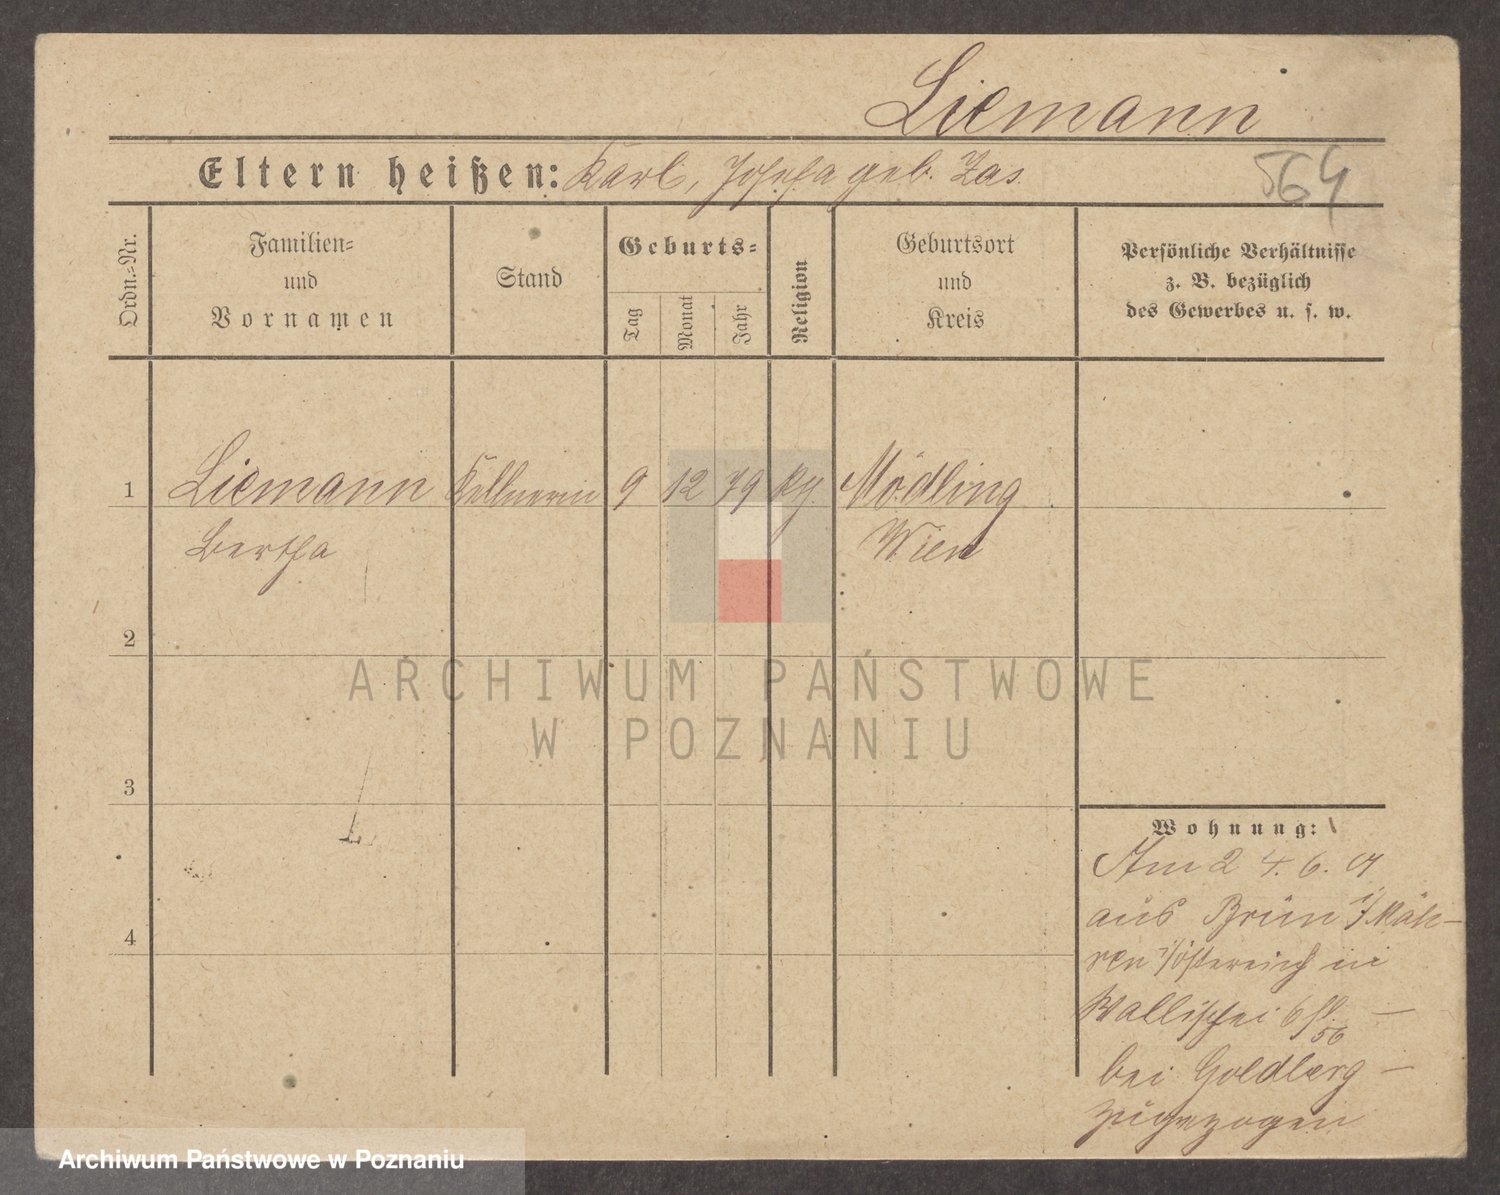 Liemann
Eltern heißen: Karl, Josefa geb. Zas
564
Ordn.=Nr.
Familien=
und
Vornamen
Stand
Geburts=
Tag
Monat
Jahr
Religion
Geburtsort
und
Kreis
Persönliche Verhältnisse
z. B. bezüglich
des Gewerbes u. s. w.
1
Liemann Kellnerin 9 12 79 Mödling
Bertha Wien
2
3
4
Wohnung:
Am 24.6.01
aus Brünn i/Mäh-
ren i/östereich in
Wallischei
56
bei Goldberg -
zugezogen
ARCHIWUM PAŃSTWOWE
W POZNANIU
Archiwum Państwowe w Poznaniu